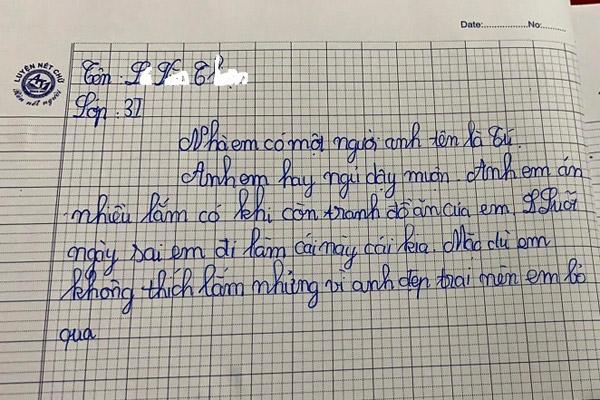 Date:................No:............
LUYỆN NÉT CHỮ
Rèn nết người
Tên:
Lớp: 3I
Nhà em có một người anh tên là Tú.
Anh em hay ngủ dậy muộn. Anh em ăn
nhiều lắm có khi còn tranh đồ ăn của em. Suốt
ngày sai em đi làm cái này cái kia. Mặc dù em
không thích lắm nhưng vì anh đẹp trai nên em bỏ
qua